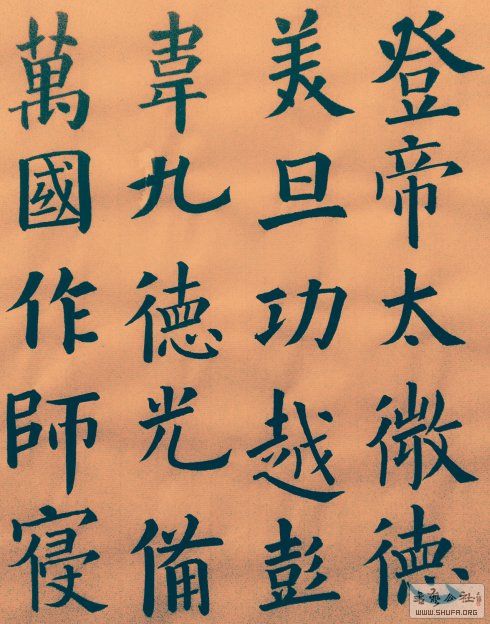 登帝太微德
美旦功越彭
韋九德光備
萬國作師寑
WWW.SHUFA.ORG